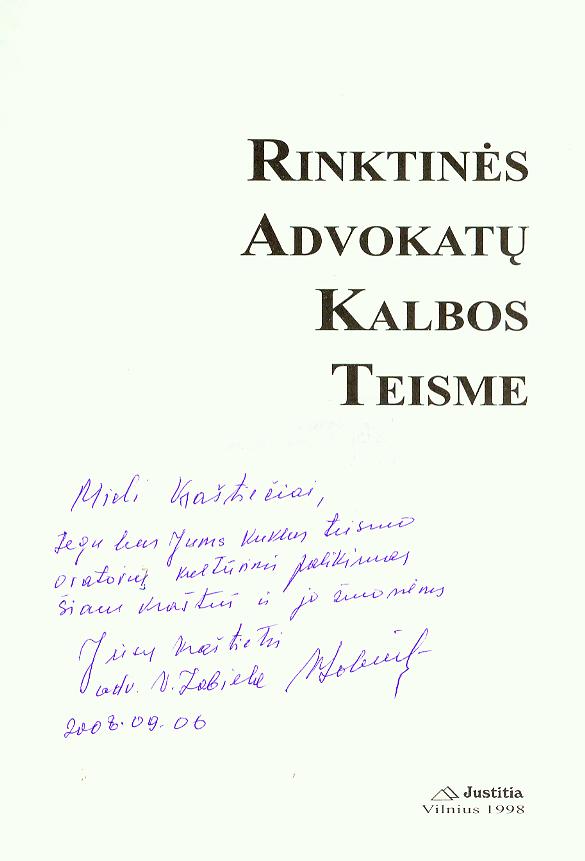 RINKTINĖS
ADVOKATŲ
KALBOS
TEISME
Mieli Kraštiečiai,
Tegu bus Jums kuklus teismo
oratorių kultūrinis palikimas
šiam kraštui ir jo žmonėms
Jūsų kraštietis
adv. V. Zabiela
2008.09.06
Justitia
Vilnius 1998